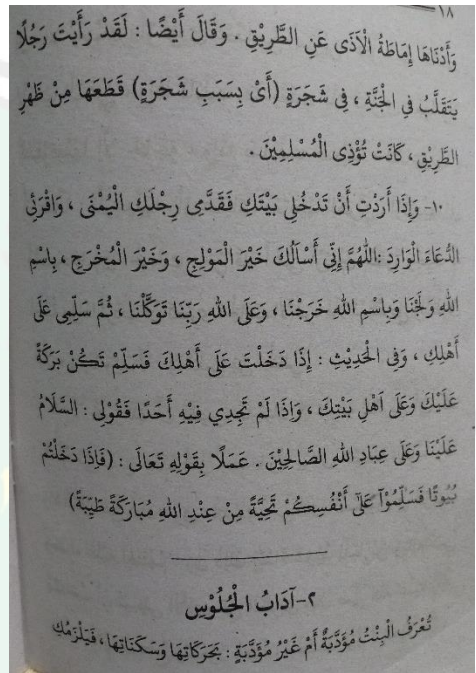 ١٨
وَأَدْنَاهَا إِمَاطَةُ الْأَذَى عَنِ الطَّرِيْقِ . وَقَالَ أَيْضًا : لَقَدْ رَأَيْتَ رَجُلًا
يَتَقَلَّبُ فِي الْجَنَّةِ ، فِي شَجَرَةٍ (أَىْ بِسَبَبِ شَجَرَةٍ) قَطَعَهَا مِنْ ظَهْرِ
الطَّرِيْقِ ، كَانَتْ تُؤْذِى الْمُسْلِمِيْنَ .
١٠- وَإِذَا أَرَدْتِ أَنْ تَدْخُلِى بَيْتَكِ فَقَدِّمِى رِجْلَكِ الْيُمْنَى ، وَاقْرَئِى
الدُّعَاءَ الْوَارِدَ :اللّٰهُمَّ إِنِّى أَسْأَلُكَ خَيْرَ الْمَوْلِجِ ، وَخَيْرَ الْمُخْرَجِ ، بِاسْمِ
اللهِ وَلَجْنَا وَبِاسْمِ اللهِ خَرَجْنَا ، وَعَلَى اللهِ رَبِّنَا تَوَكَّلْنَا ، ثُمَّ سَلِّمِى عَلَى
أَهْلِكِ ، وَفِى الْحَدِيْثِ : إِذَا دَخَلْتَ عَلَى أَهْلِكَ فَسَلِّمْ تَكُنْ بَرَكَةً
عَلَيْكَ وَعَلَى اَهْلِ بَيْتِكَ ، وَاِذَا لَمْ تَجِدِي فِيْهِ أَحَدًا فَقُوْلِى : السَّلَامُ
عَلَيْنَا وَعَلَى عِبَادِ اللهِ الصَّالِحِيْنَ . عَمَلًا بِقَوْلِهِ تَعَالَى : (فَاِذَا دَخَلْتُمْ
بُيُوتًا فَسَلِّمُوْا عَلَى أَنْفُسِكُمْ تَحِيَّةً مِنْ عِنْدِ اللهِ مُبَارَكَةً طَيِّبَةً)
٢-آدَابُ الْجُلُوْسِ
تُعْرَفُ الْبِنْتُ مُؤَدَّبَةٌ أَمْ غَيْرُ مُؤَدَّبَةٍ : بِحَرَكَاتِهَا وَسَكَنَاتِهَا ، فَيَلْزَمُكِ